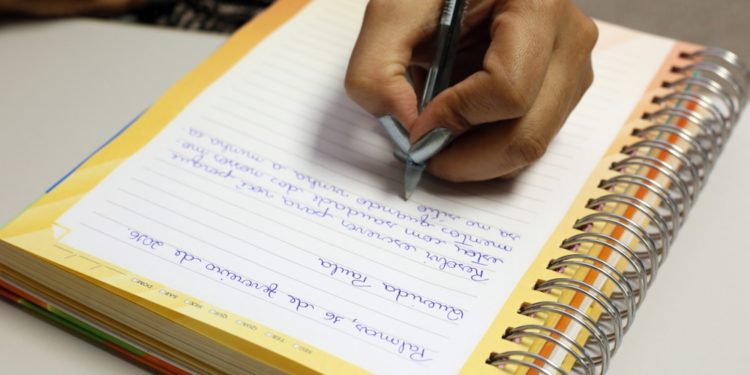 SEG TER QUA QUI SEX SAB DOM
Palmas, 16 de fevereiro de 2016.
Querida Paula
Resolvi escrever para você porque
estou com saudade dos nossos mo-
mentos quando vinha a minha ca
sa me